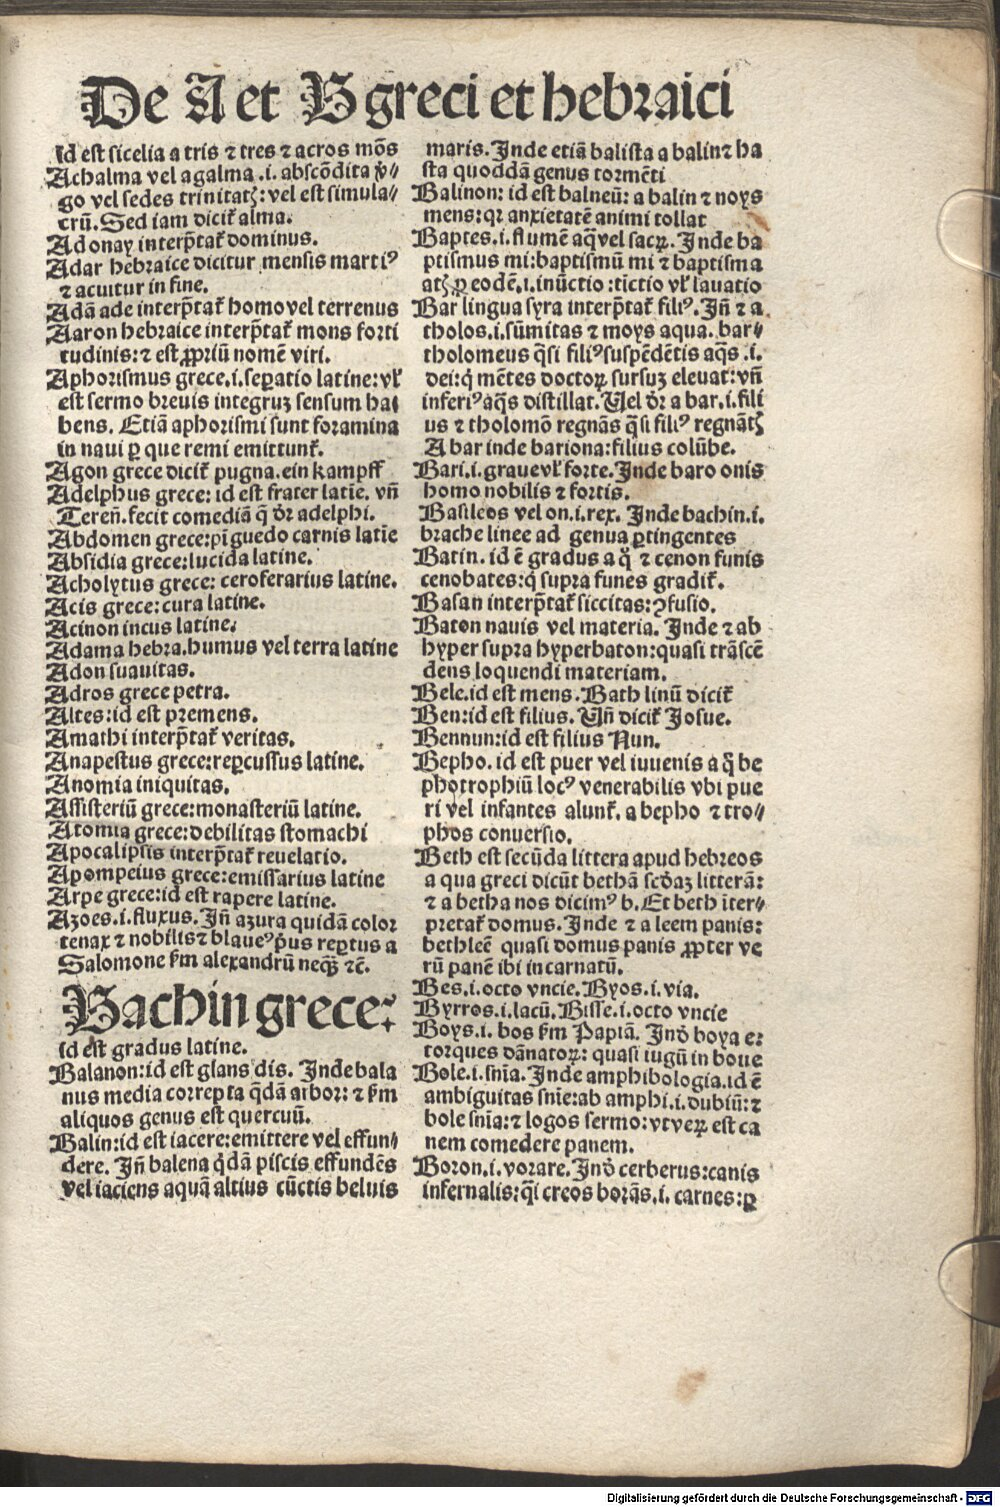 De A et B greci et hebraici
id est sicelia a tris ⁊ tres ⁊ acros mōs
Achalma vel agalma .i. abscōdita v̾-
go vel sedes trinitatꝭ: vel est simula-
crū. Sed iam diciť alma.
Adonay interp̄tať dominus.
Adar hebraice dicitur mensis martiꝰ
⁊ acuitur in fine.
Adā ade interp̄tať homo vel terrenus
Aaron hebraice interp̄tať mons forti
tudinis: ⁊ est ꝓpriū nomē viri.
Aphorismus grece .i. seꝑatio latine: vl̓
est sermo breuis integruꝫ sensum ha
bens. Etiā aphorismi sunt foramina
in naui ꝑ que remi emittunť.
Agon grece diciť pugna. ein kampff
Adelphus grece: id est frater latie. vn̄
Teren̄. fecit comediā q̄ dr̄ adelphi.
Abdomen grece: piguedo carnis latie
Absidia grece: lucida latine.
Acholytus grece: ceroferarius latine.
Acis grece: cura latine.
Acinon incus latine.
Adama hebra. humus vel terra latine
Adon suauitas.
Adros grece petra.
Altes: id est premens.
Amathi interp̄tať veritas.
Anapestus grece: reꝑcussus latine.
Anomia iniquitas.
Assisteriū grece: monasteriū latine.
Atomia grece: debilitas stomachi
Apocalipsis interp̄tať reuelatio.
Apompeius grece: emissarius latine
Arpe grece: id est rapere latine.
Azoes .i. fluxus. Jn̄ azura quidā color
tenax ⁊ nobilis ⁊ blaueꝰ p̓us reꝑtus a
Salomone km̄ alexandrū neqꝫ ⁊c̄.
Bachin grece:
id est gradus latine.
Balanon: id est glans dis. Jnde bala
nus media correpta q̄dā arbor: ⁊ km̄
aliquos genus est quercuū.
Balin: id est iacere: emittere vel effun-
dere. Jn̄ balena q̄dā piscis effundēs
vel iaciens aquā altius cūctis beluis
maris. Jnde etiā balista a balin ⁊ ha
sta quoddā genus tormēti
Balinon: id est balneū: a balin ⁊ noys
mens: qꝛ anxietatē animi tollat
Baptes .i. flumē aq̄ vel sacꝝ. Jnde ba
ptismus mi: baptismū mi ⁊ baptisma
atꝭ ꝓ eodē .i. inūctio: tictio vl̓ lauatio
Bar lingua syra interp̄tať filiꝰ. Jn̄ ⁊ a
tholos .i. sūmitas ⁊ moys aqua. bar-
tholomeus q̄si filiꝰ suspēdētis aq̄s .i.
dei: q̓ mētes doctoꝝ sursuꝫ eleuat: vn̄
inferiꝰ aq̄s distillat. Vel dr̄ a bar .i. fili
us ⁊ tholomō regnās q̄si filiꝰ regnātꝭ
A bar inde bariona: filius colūbe.
Bari .i. graue vl̓ forte. Jnde baro onis
homo nobilis ⁊ fortis.
Basileos vel on .i. rex. Jnde bachin .i.
brache linee ad genua ꝑtingentes
Batin. id ē gradus a q̓ ⁊ cenon funis
cenobates: q̓ supra funes gradiť.
Basan interp̄tať siccitas: ꝯfusio.
Baton nauis vel materia. Jnde ⁊ ab
hyper supra hyperbaton: quasi trāscē
dens loquendi materiam.
Bele. id est mens. Bath linū diciť
Ben: id est filius. Vn̄ diciť Josue.
Bennun: id est filius Nun.
Bepho. id est puer vel iuuenis a q̄ be
photrophiū locꝰ venerabilis vbi pue
ri vel infantes alunť. a bepho ⁊ tro-
phos conuersio.
Beth est secūda littera apud hebreos
a qua greci dicūt bethā scd̓aꝫ litterā:
⁊ a betha nos dicimꝰ b. Et beth īter-
pretať domus. Jnde ⁊ a leem panis:
bethleē quasi domus panis ꝓpter ve
rū panē ibi incarnatū.
Bes .i. octo vncie. Byos .i. via.
Byrros .i. lacū. Bisse .i. octo vncie
Boys .i. bos km̄ Papiā. Jnd̓ boya e:
torques dānatoꝝ: quasi iugū in boue
Bole .i. sn̄ia. Jnde amphibologia. id ē
ambiguitas sn̄ie: ab amphi .i. dubiū: ⁊
bole sn̄ia: ⁊ logos sermo: vt veꝝ est ca
nem comedere panem.
Boron .i. vorare. Jnd̓ cerberus: canis
infernalis: q̄i creos borās .i. carnes: ꝑ
Digitalisierung gefördert durch die Deutsche Forschungsgemeinschaft - DFG